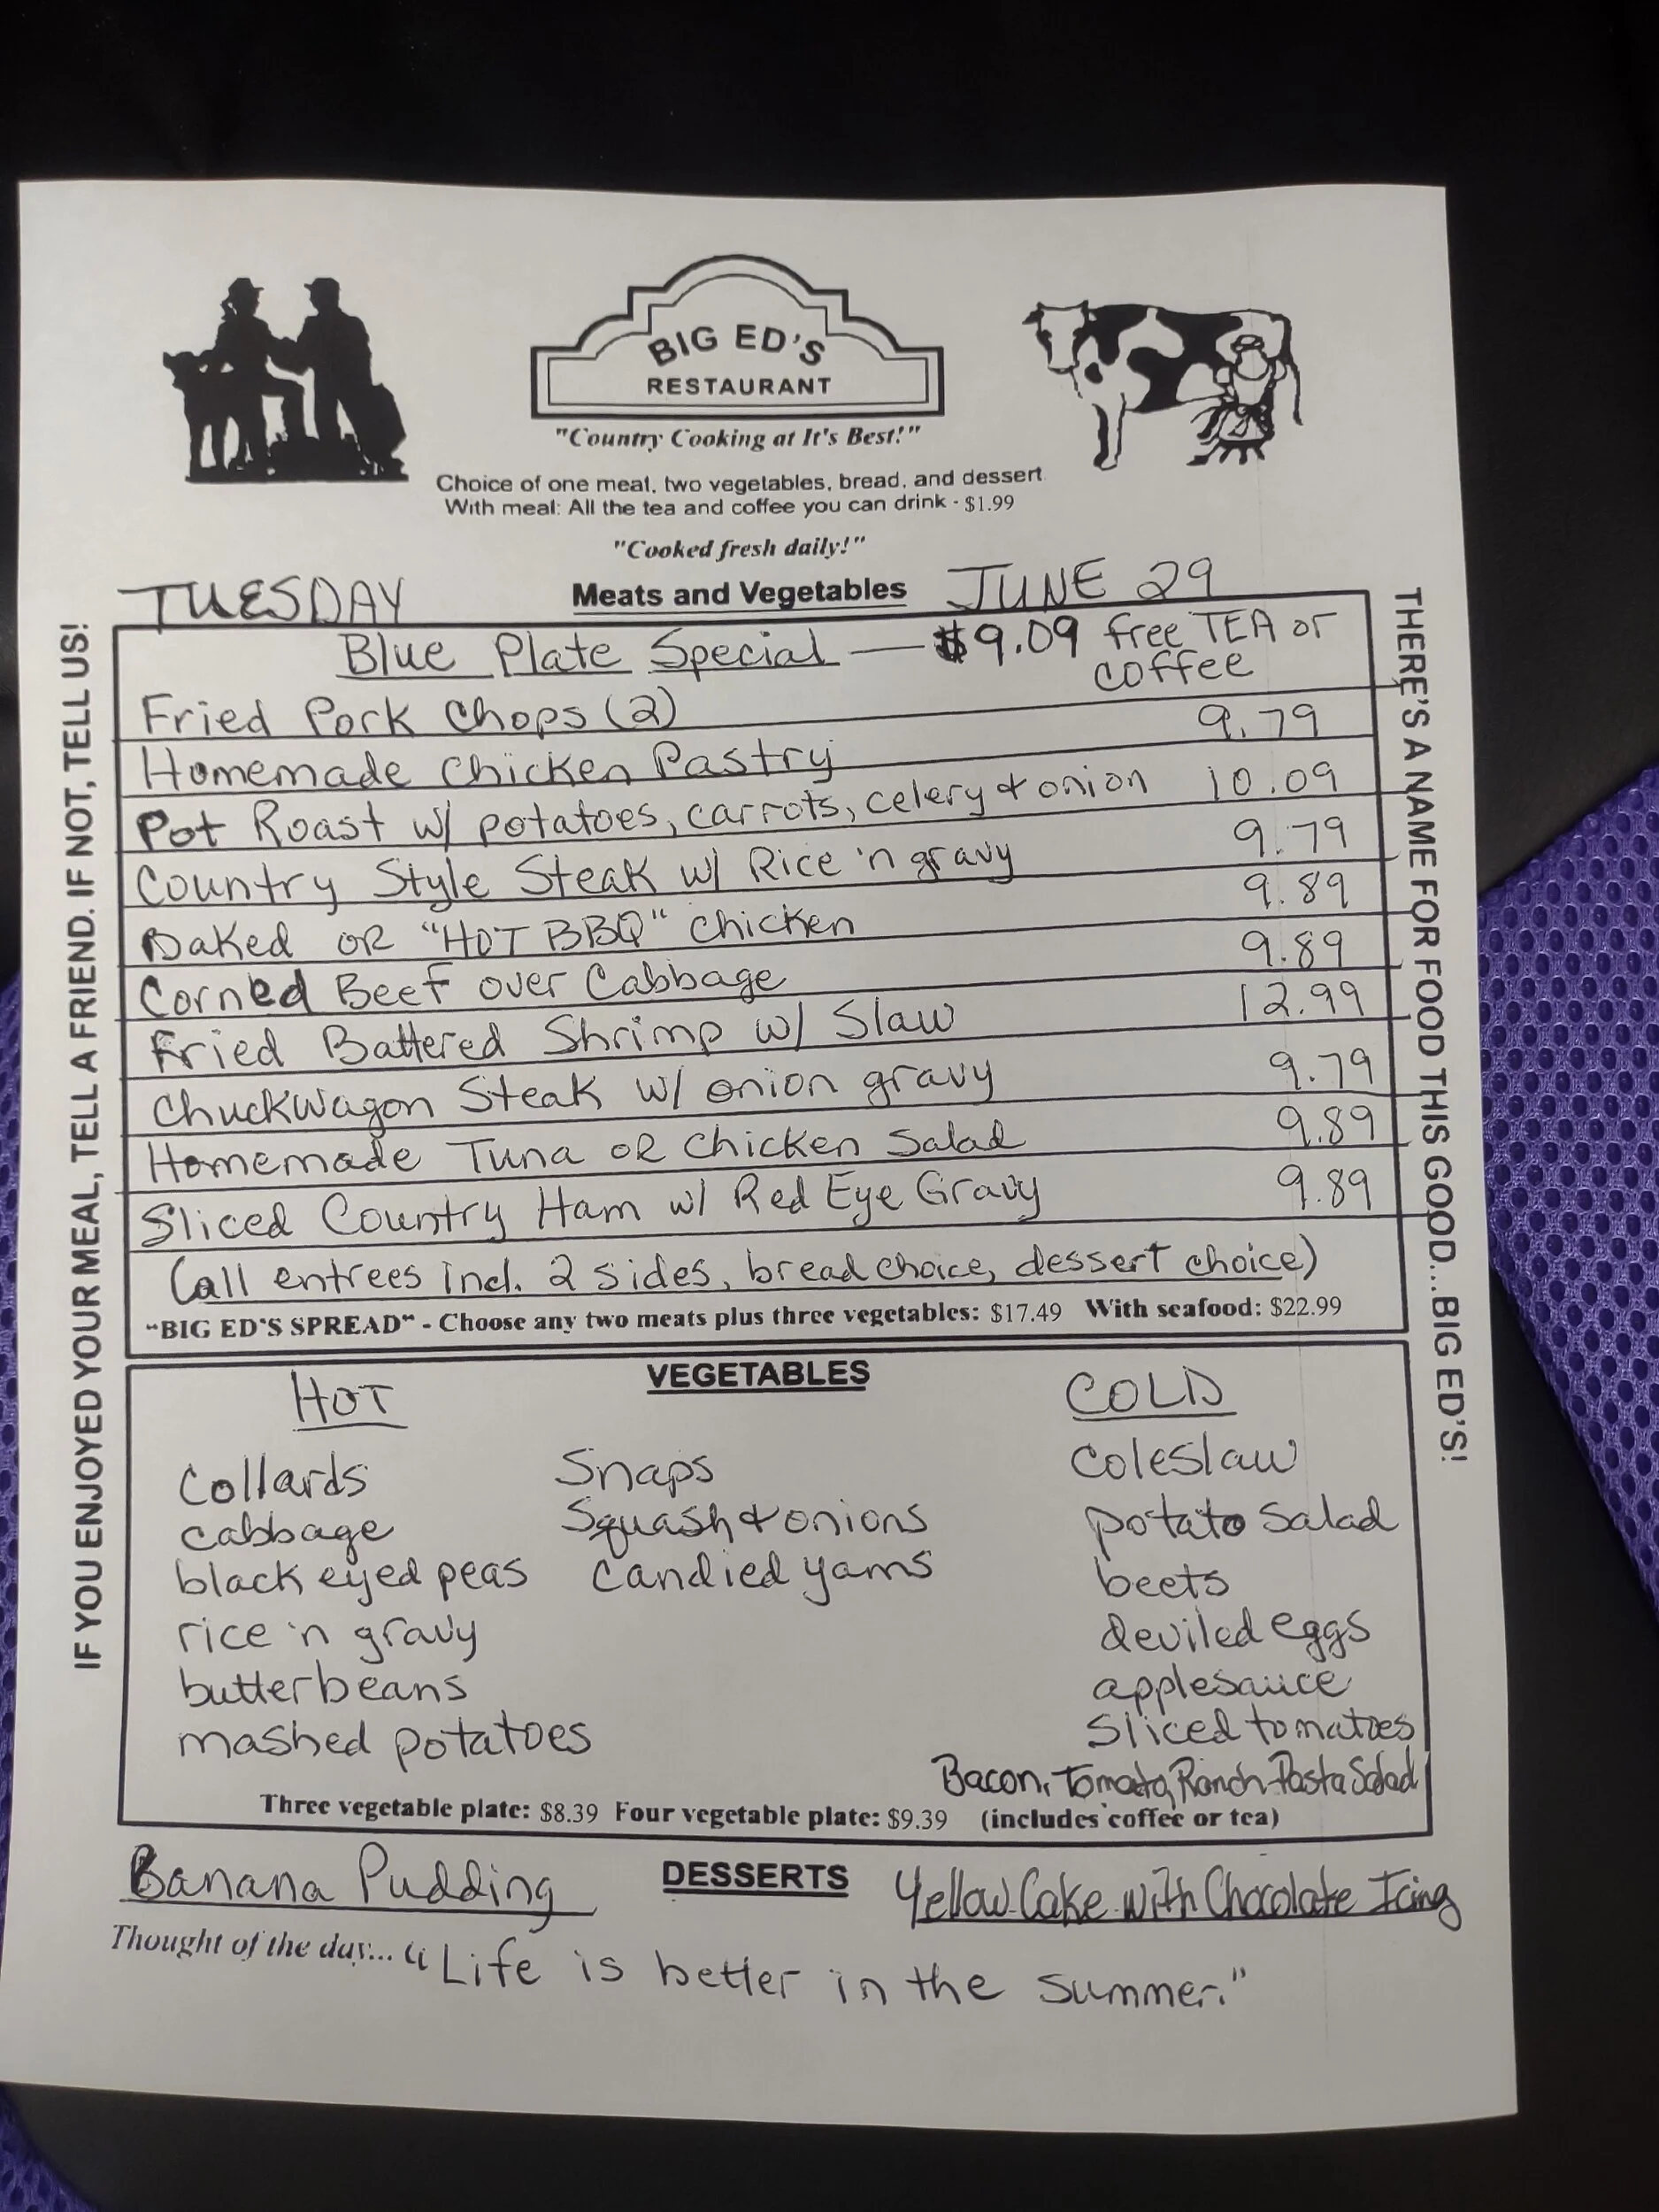 BIG ED'S
RESTAURANT
"Country Cooking at It's Best!"
Choice of one meat, two vegetables, bread, and dessert
With meal: All the tea and coffee you can drink - $1.99
"Cooked fresh daily!"
TUESDAY Meats and Vegetables JUNE 29
Blue Plate Special — $9.09 free TEA or
coffee
Fried Pork Chops (2)
Homemade Chicken Pastry 9.79
Pot Roast w/ potatoes, carrots, celery & onion 10.09
Country Style Steak w/ Rice 'n gravy 9.79
Baked OR "HOT BBQ" Chicken 9.89
Corned Beef over Cabbage 9.89
Fried Battered Shrimp w/ Slaw 12.99
Chuckwagon Steak w/ onion gravy 9.79
Homemade Tuna OR Chicken Salad 9.89
Sliced Country Ham w/ Red Eye Gravy 9.89
(all entrees incl. 2 sides, bread choice, dessert choice)
"BIG ED'S SPREAD" - Choose any two meats plus three vegetables: $17.49 With seafood: $22.99
IF YOU ENJOYED YOUR MEAL, TELL A FRIEND. IF NOT, TELL US!
THERE'S A NAME FOR FOOD THIS GOOD...BIG ED'S!
HOT VEGETABLES COLD
Collards Snaps Coleslaw
cabbage Squash & onions potato salad
black eyed peas candied yams beets
rice 'n gravy deviled eggs
butterbeans applesauce
mashed potatoes sliced tomatoes
Bacon, Tomato, Ranch Pasta Salad
Three vegetable plate: $8.39 Four vegetable plate: $9.39 (includes coffee or tea)
Banana Pudding DESSERTS Yellow Cake with Chocolate Icing
Thought of the day... "Life is better in the summer."